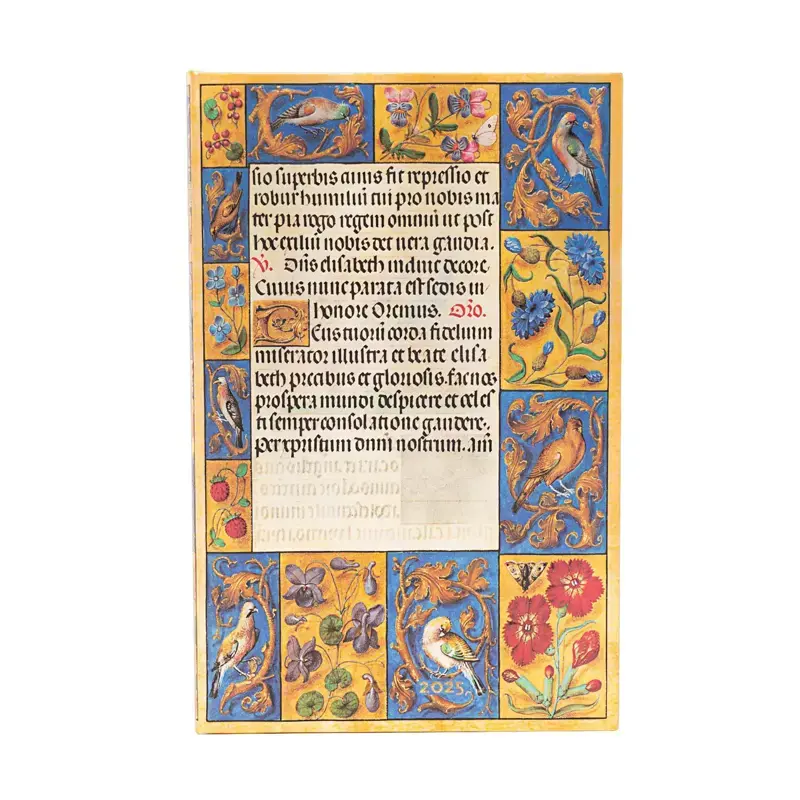 sio superbis cuius fit repressio et
robur humiliū tui pro nobis ma
ter pia rogo regem omniū ut post
hoc exiliū nobis det vera gaudia.
V. Dūs elisabeth induit decore
Cuius nunc parata est sedis in
honore Oremus. Orō.
Deus tuorū corda fidelium
miserator illustra et beate elisa
beth precibus et gloriosis. fac nos
prospera mundi despicere et celes
ti semper consolatione gaudere.
Per xpristum dnm̄ nostrum. am̄
2025